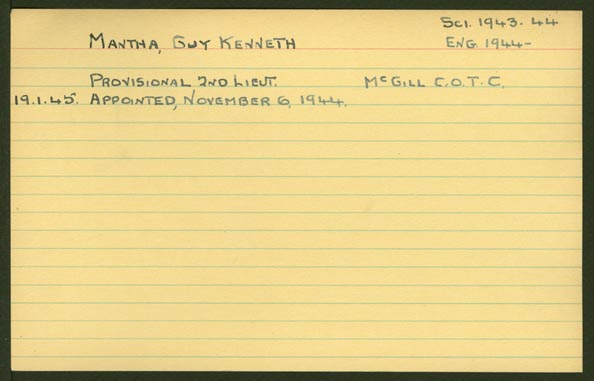 Sci. 1943-44
Mantha, Guy Kenneth
Eng. 1944-
Provisional 2nd Lieut. McGill C.O.T.C.
19.1.45. Appointed, November 6, 1944.